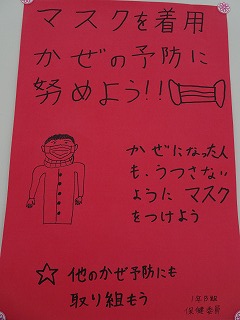 マスクを着用
かぜの予防に
努めよう!!
かぜになった人
も、うつさない
ように マスク
をつけよう
☆ 他のかぜ予防にも
取り組もう
保健委員